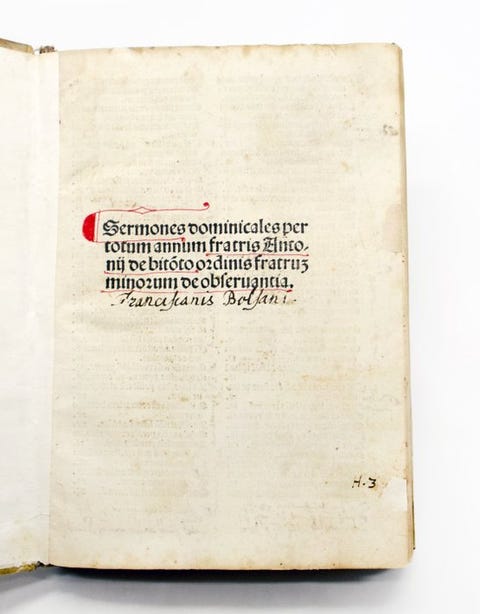 Sermones dominicales per
totum annum fratris Anto-
nij de bitōto ordinis fratruꝫ
minorum de obseruantia.
Franciscanis Bolsani.
H-3